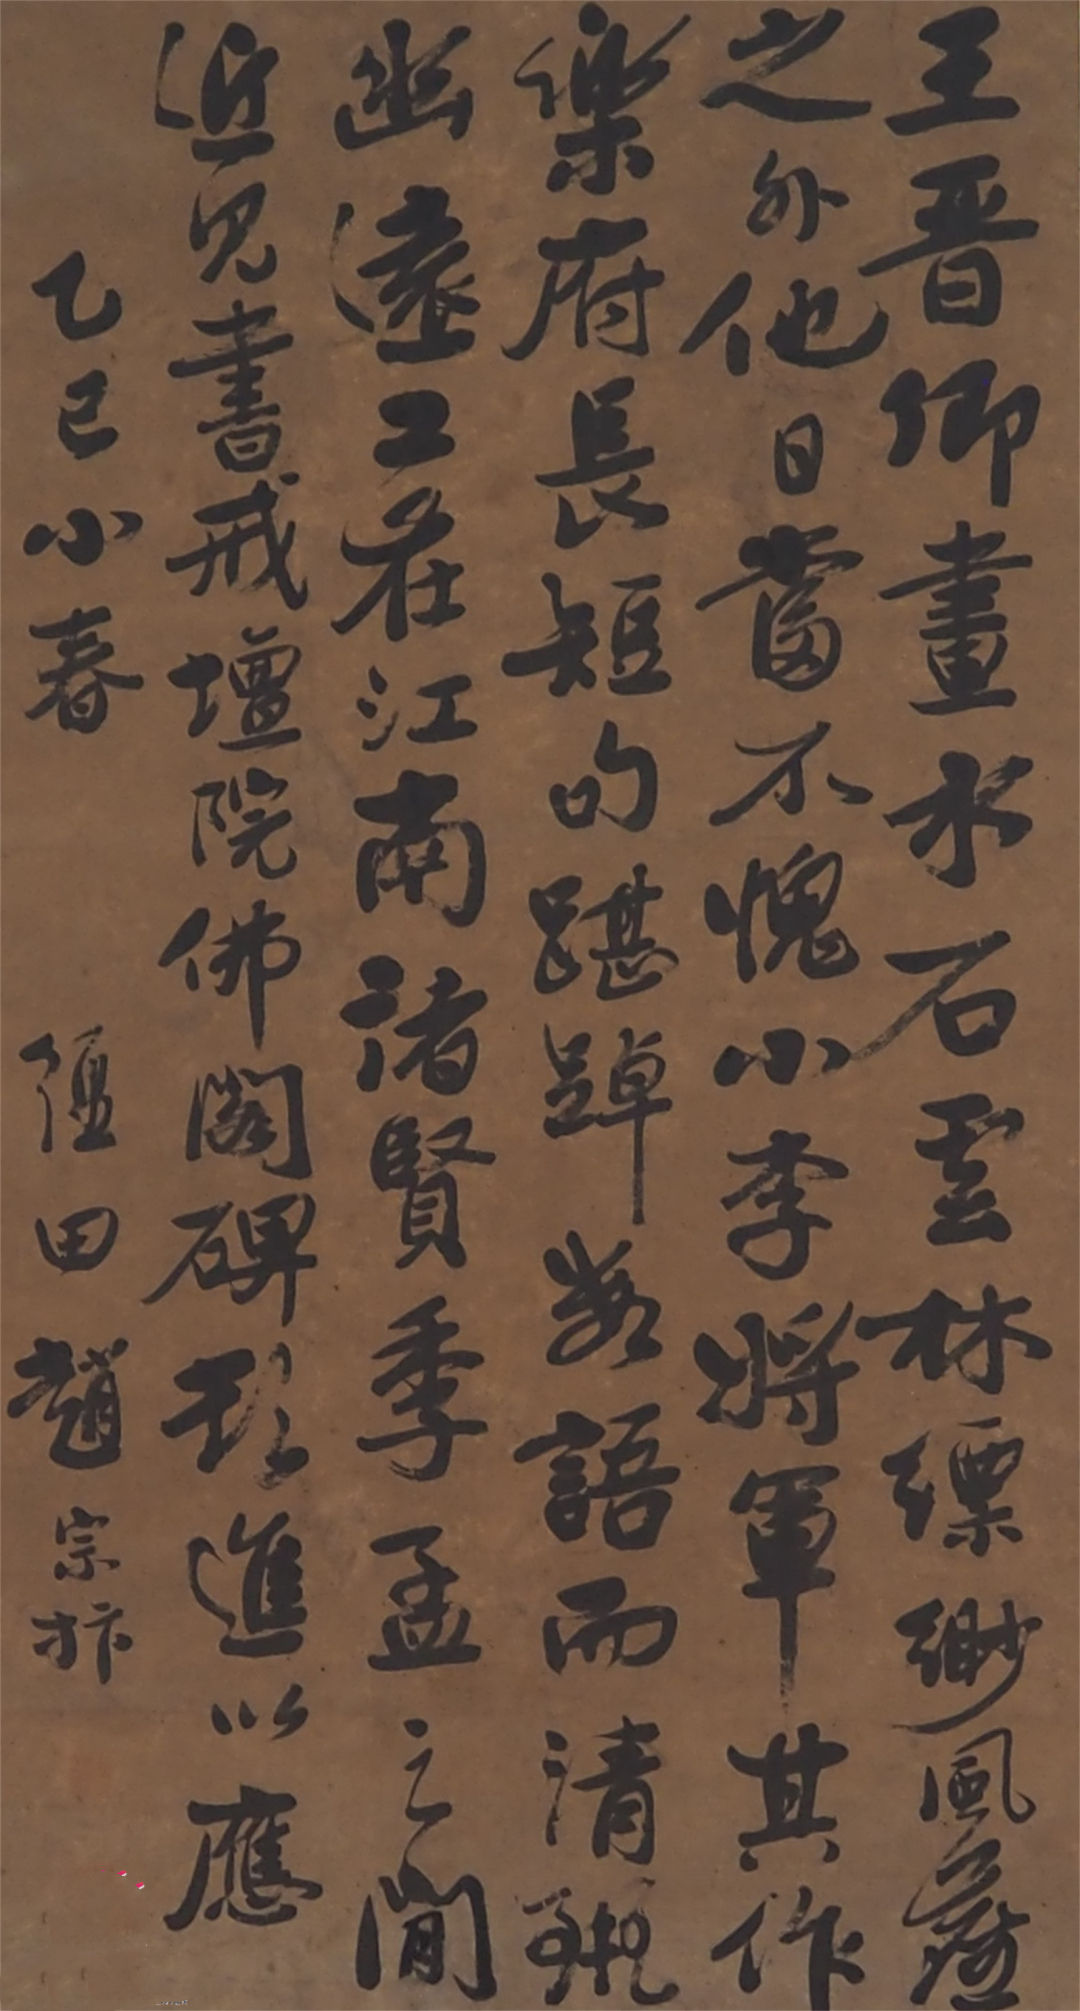 王晋卿畫水石雲林縹緲風塵
之外他日當不愧小李將軍其作
樂府長短句踸踔語而清
幽遠工在江南諸賢季孟之間
近見書戒壇院佛閣碑頗進以應
乙巳小春 田趙宗抃